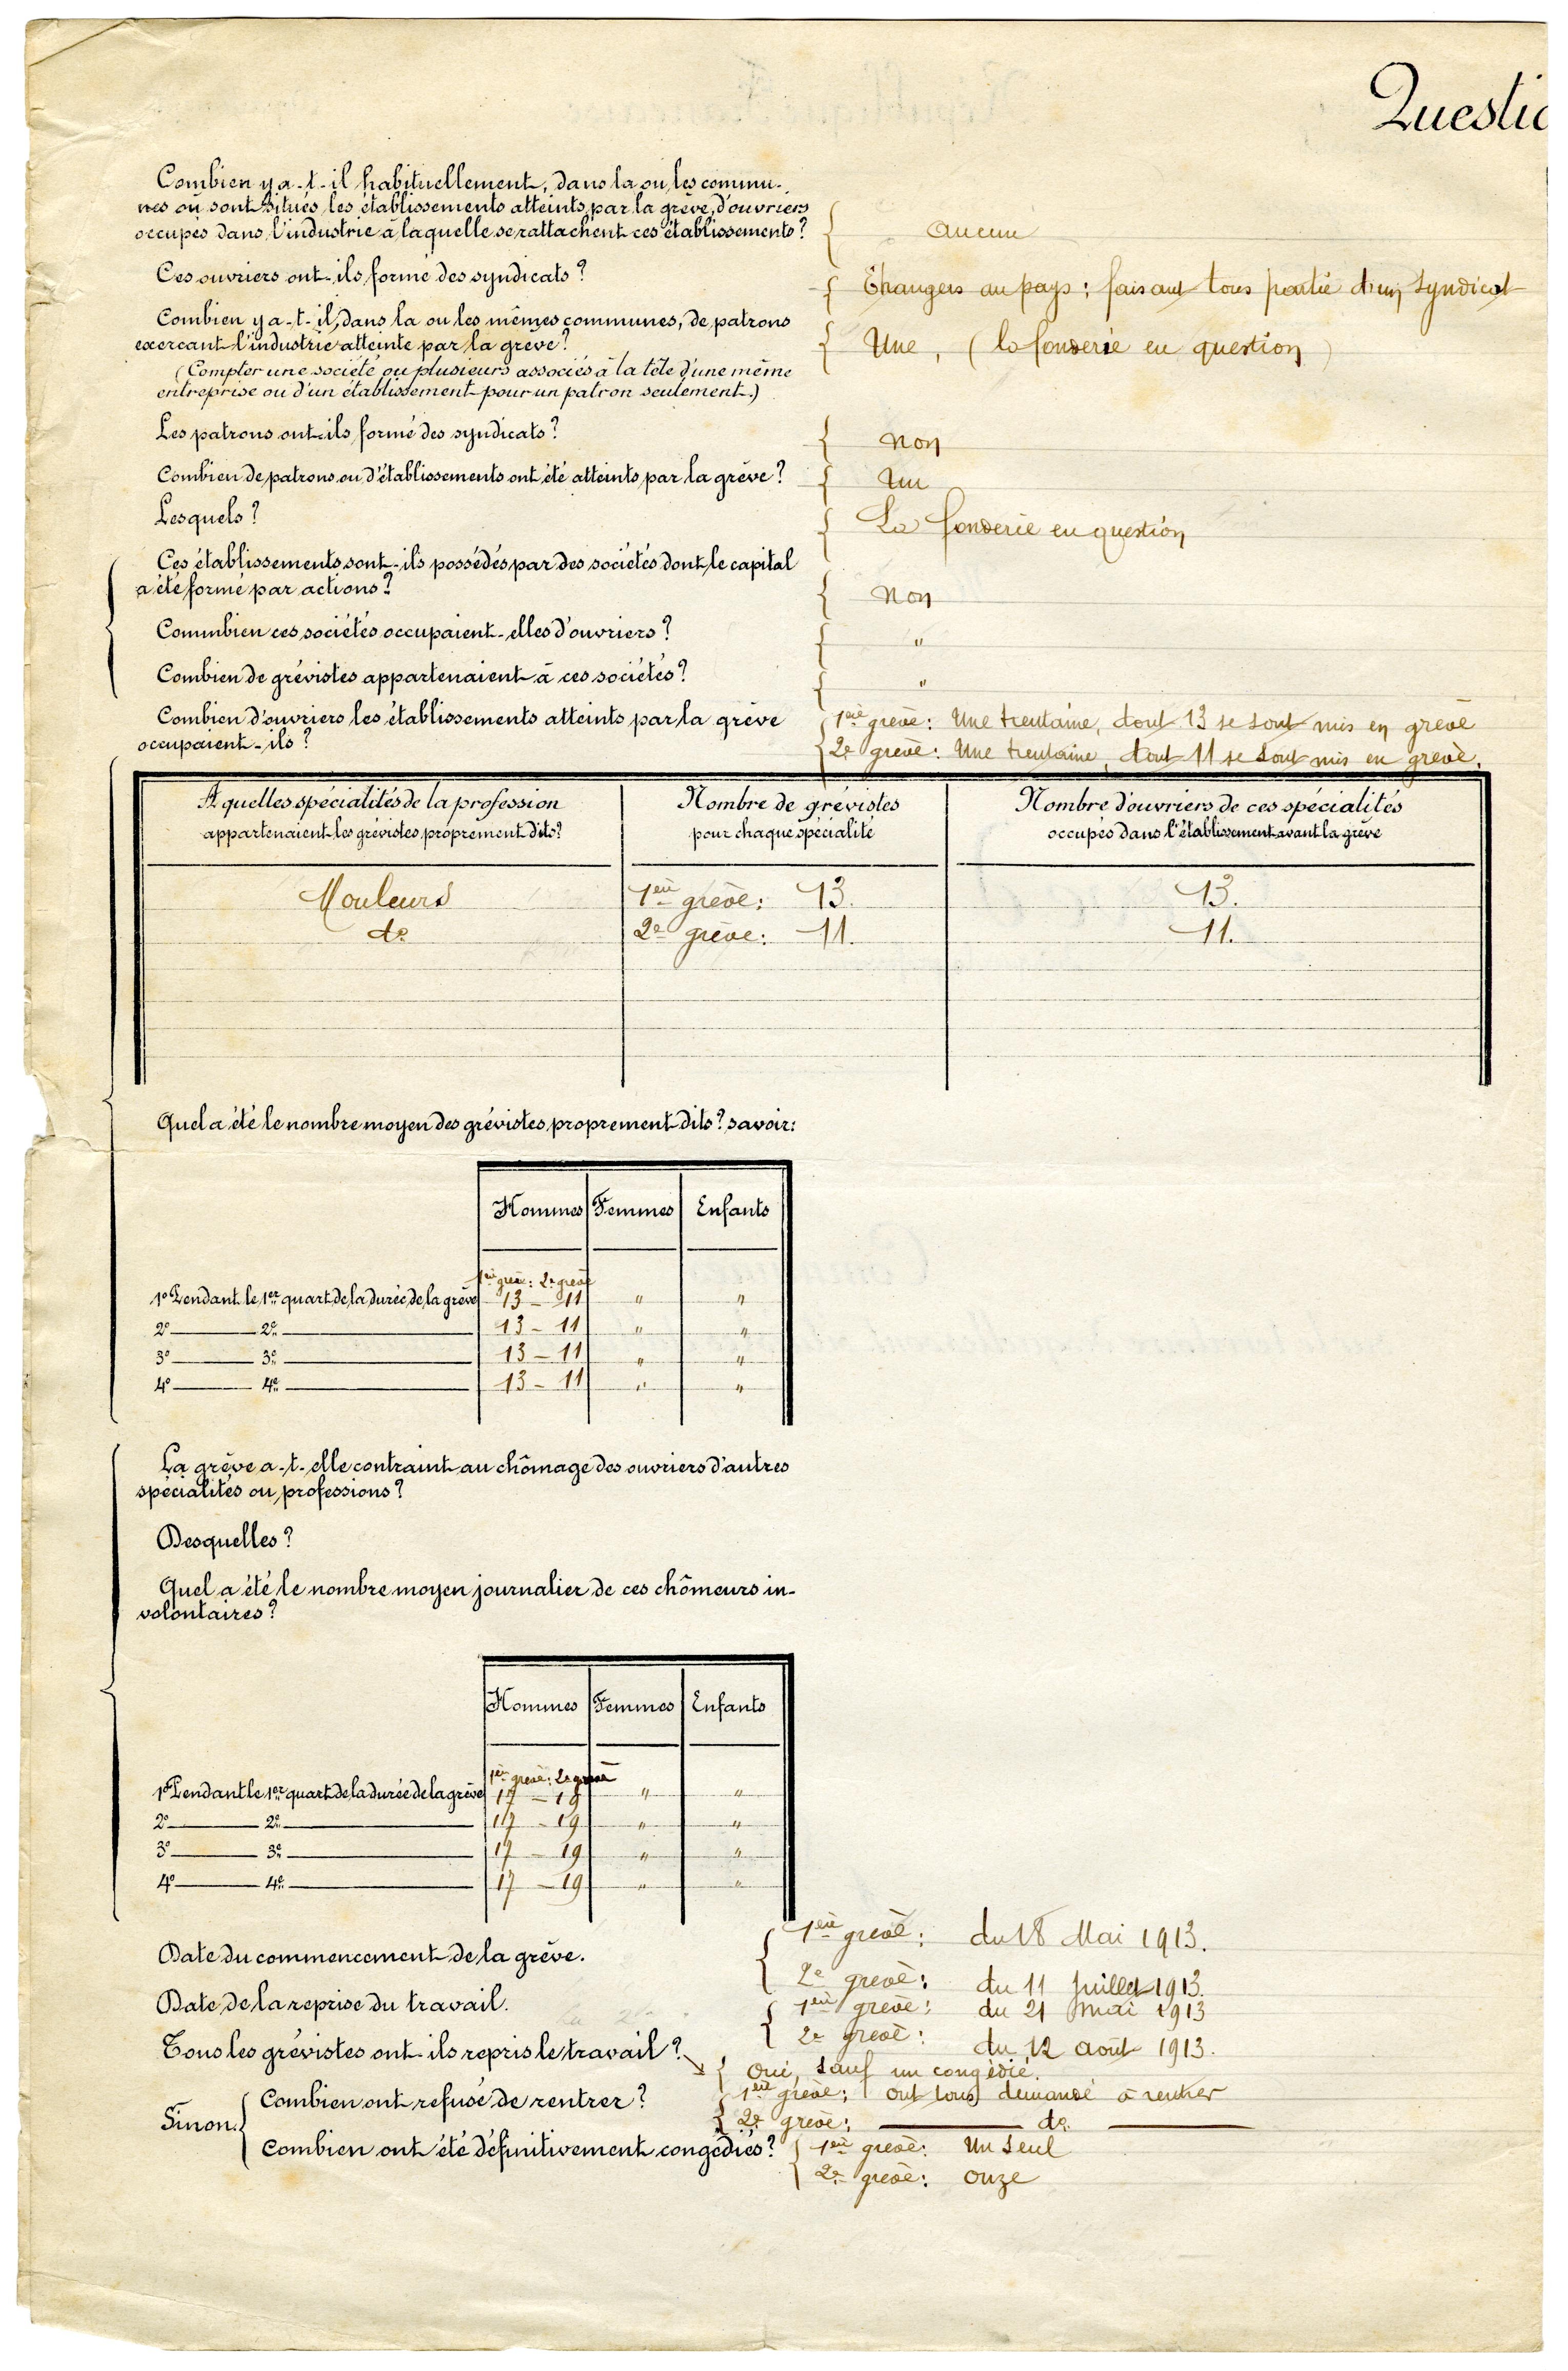 Questio
Combien y a-t-il habituellement, dans la ou les commu-
nes où sont situés les établissements atteints par la grève, d'ouvriers
occupés dans l'industrie à laquelle se rattachent ces établissements?
Aucun
Ces ouvriers ont-ils formé des syndicats?
Etrangers au pays; faisant tous partie d'un syndicat
Combien y a-t-il, dans la ou les mêmes communes, de patrons
exercant l'industrie atteinte par la grève?
Une, (la fonderie en question)
(Compter une société ou plusieurs associés à la tête d'une même
entreprise ou d'un établissement pour un patron seulement.)
Les patrons ont-ils formé des syndicats?
Non
Combien de patrons ou d'établissements ont été atteints par la grève?
Un
Lesquels?
La fonderie en question
Ces établissements sont-ils possédés par des sociétés dont le capital
a été formé par actions?
Non
Commbien ces sociétés occupaient-elles d'ouvriers?
"
Combien de grévistes appartenaient à ces sociétés?
"
Combien d'ouvriers les établissements atteints par la grève
occupaient-ils?
1ère grève: Une trentaine, dont 13 se sont mis en grève
2e grève: Une trentaine, dont 11 se sont mis en grève.
A quelles spécialités de la profession
appartenaient les grévistes proprement dits?
Nombre de grévistes
pour chaque spécialité
Nombre d'ouvriers de ces spécialités
occupés dans l'établissement avant la grève
Mouleurs 1ère grève: 13. 13.
do 2e grève: 11. 11.
Quel a été le nombre moyen des grévistes proprement dits? savoir:
Hommes Femmes Enfants
1ère grève: 2e grève
1o Pendant le 1er quart de la durée de la grève 13 - 11 " "
2o 2e 13 - 11 " "
3o 3e 13 - 11 " "
4o 4e 13 - 11 " "
La grève a-t-elle contraint au chômage des ouvriers d'autres
spécialités ou professions?
Desquelles?
Quel a été le nombre moyen journalier de ces chômeurs in-
volontaires?
Hommes Femmes Enfants
1ère grève: 2e grève
1o Pendant le 1er quart de la durée de la grève 17 - 19 " "
2o 2e 17 - 19 " "
3o 3e 17 - 19 " "
4o 4e 17 - 19 " "
Date du commencement de la grève.
1ère grève: du 18 Mai 1913.
2e grève: du 11 Juillet 1913.
Date de la reprise du travail.
1ère grève: du 21 Mai 1913
2e grève: du 12 août 1913.
Tous les grévistes ont-ils repris le travail?
Oui, sauf un congédié.
Sinon
Combien ont refusé de rentrer?
1ère grève: ont tous demandé à rentrer
2e grève: do
Combien ont été définitivement congédiés?
1ère grève: Un seul
2e grève: Onze